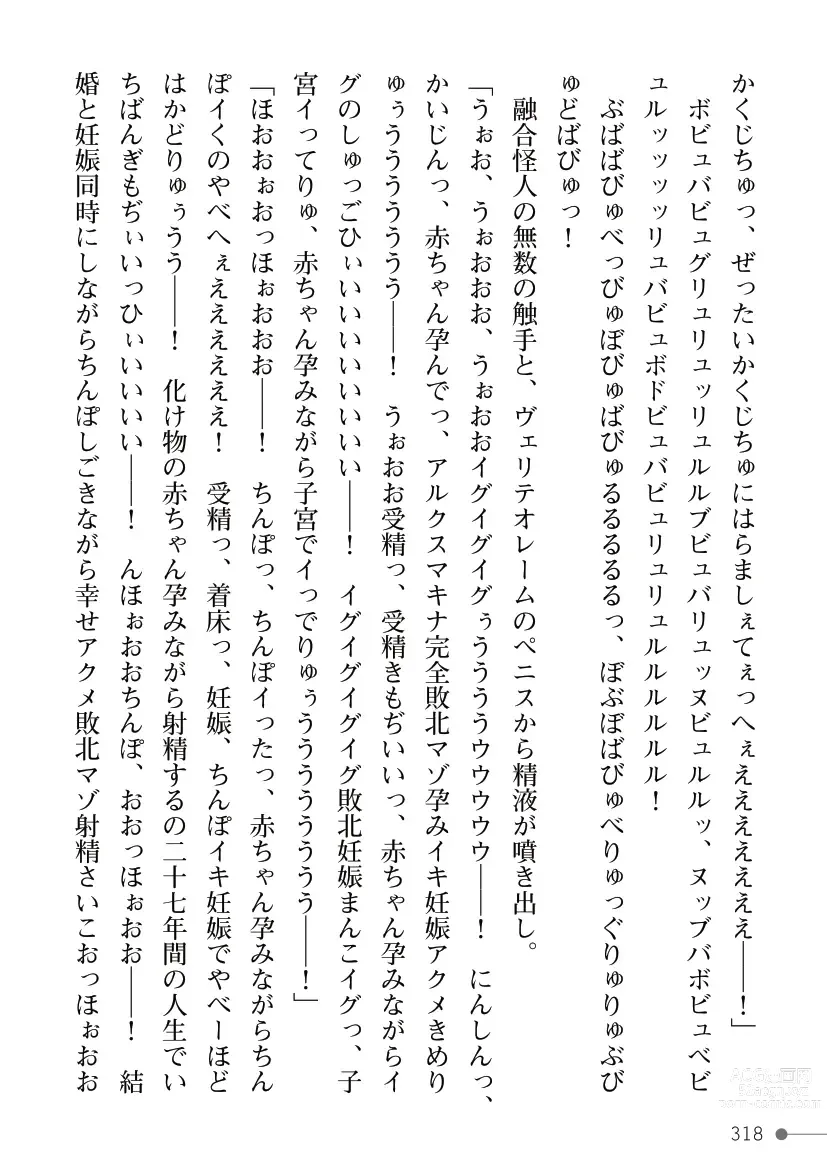 かくじちゅっ、ぜったいかくじちゅにはらましぇてぇっへぇええええええええ――！」
ボビュバビュグリュリュッリュルルブビュバリュッヌビュルルッ、ヌッブバボビュベビ
ュルッッッッリュバビュボドビュバビュリュリュルルルルルルル！
ぶばばびゅべっびゅぼびゅばびゅるるるるるっ、ぼぶぼばびゅべりゅっぐりゅりゅぶび
ゅどばびゅっ！
融合怪人の無数の触手と、ヴェリテオレームのペニスから精液が噴き出し。
「うぉお、うぉおおお、うぉおおイグイグイグぅううううゥウウウウ――！　にんしんっ、
かいじんっ、赤ちゃん孕んでっ、アルクスマキナ完全敗北マゾ孕みイキ妊娠アクメきめり
ゅぅううううううう――！　うぉおお受精っ、受精きもぢいいっ、赤ちゃん孕みながらイ
グのしゅっごひぃいいいいいいいい――！　イグイグイグイグ敗北妊娠まんこイグっ、子
宮イってりゅ、赤ちゃん孕みながら子宮でイっでりゅぅうううううううう――！」
「ほおおぉおっほぉおおお――！　ちんぽっ、ちんぽイったっ、赤ちゃん孕みながらちん
ぽイくのやべへぇええええええ！　受精っ、着床っ、妊娠、ちんぽイキ妊娠でやべーほど
はかどりゅぅうう――！　化け物の赤ちゃん孕みながら射精するの二十七年間の人生でい
ちばんぎもぢぃいっひぃいいいいい――！　んほぉおおちんぽ、おおっほぉおお――！　結
婚と妊娠同時にしながらちんぽしごきながら幸せアクメ敗北マゾ射精さいこおっほぉおお
318